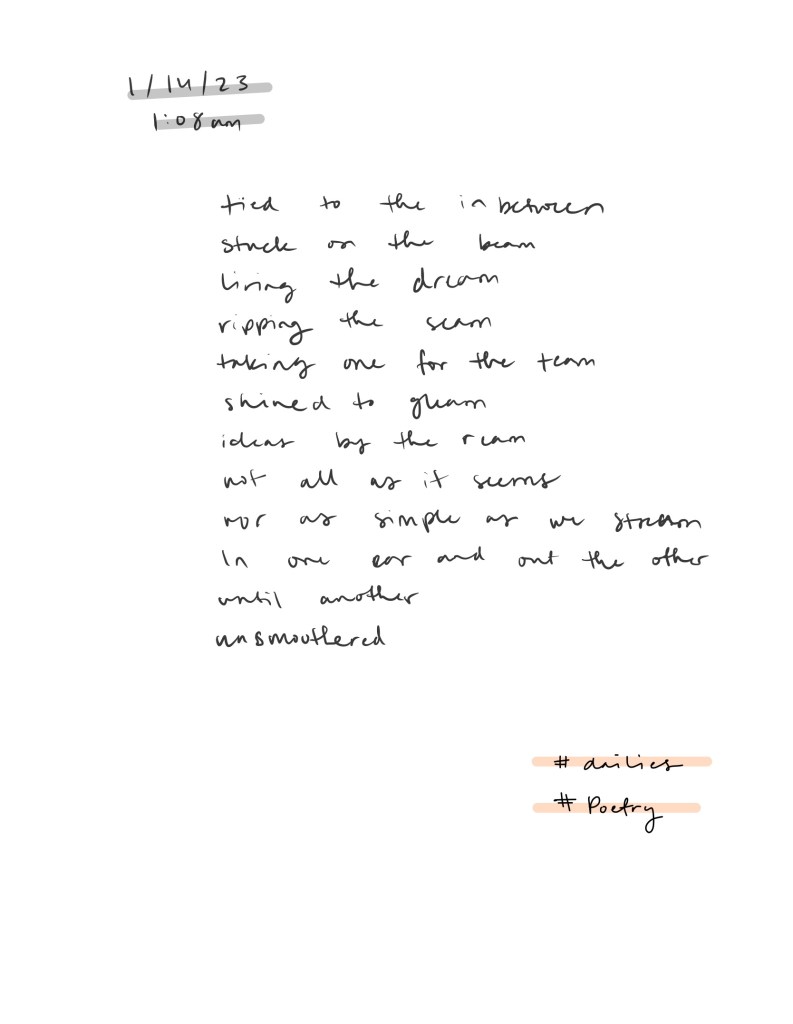 1/14/23
1:08am
tied to the in between
stuck on the beam
living the dream
ripping the seam
taking one for the team
shined to gleam
ideas by the ream
not all as it seems
nor as simple as we stream
In one ear and out the other
until another
unsmouthered
# dailies
# Poetry